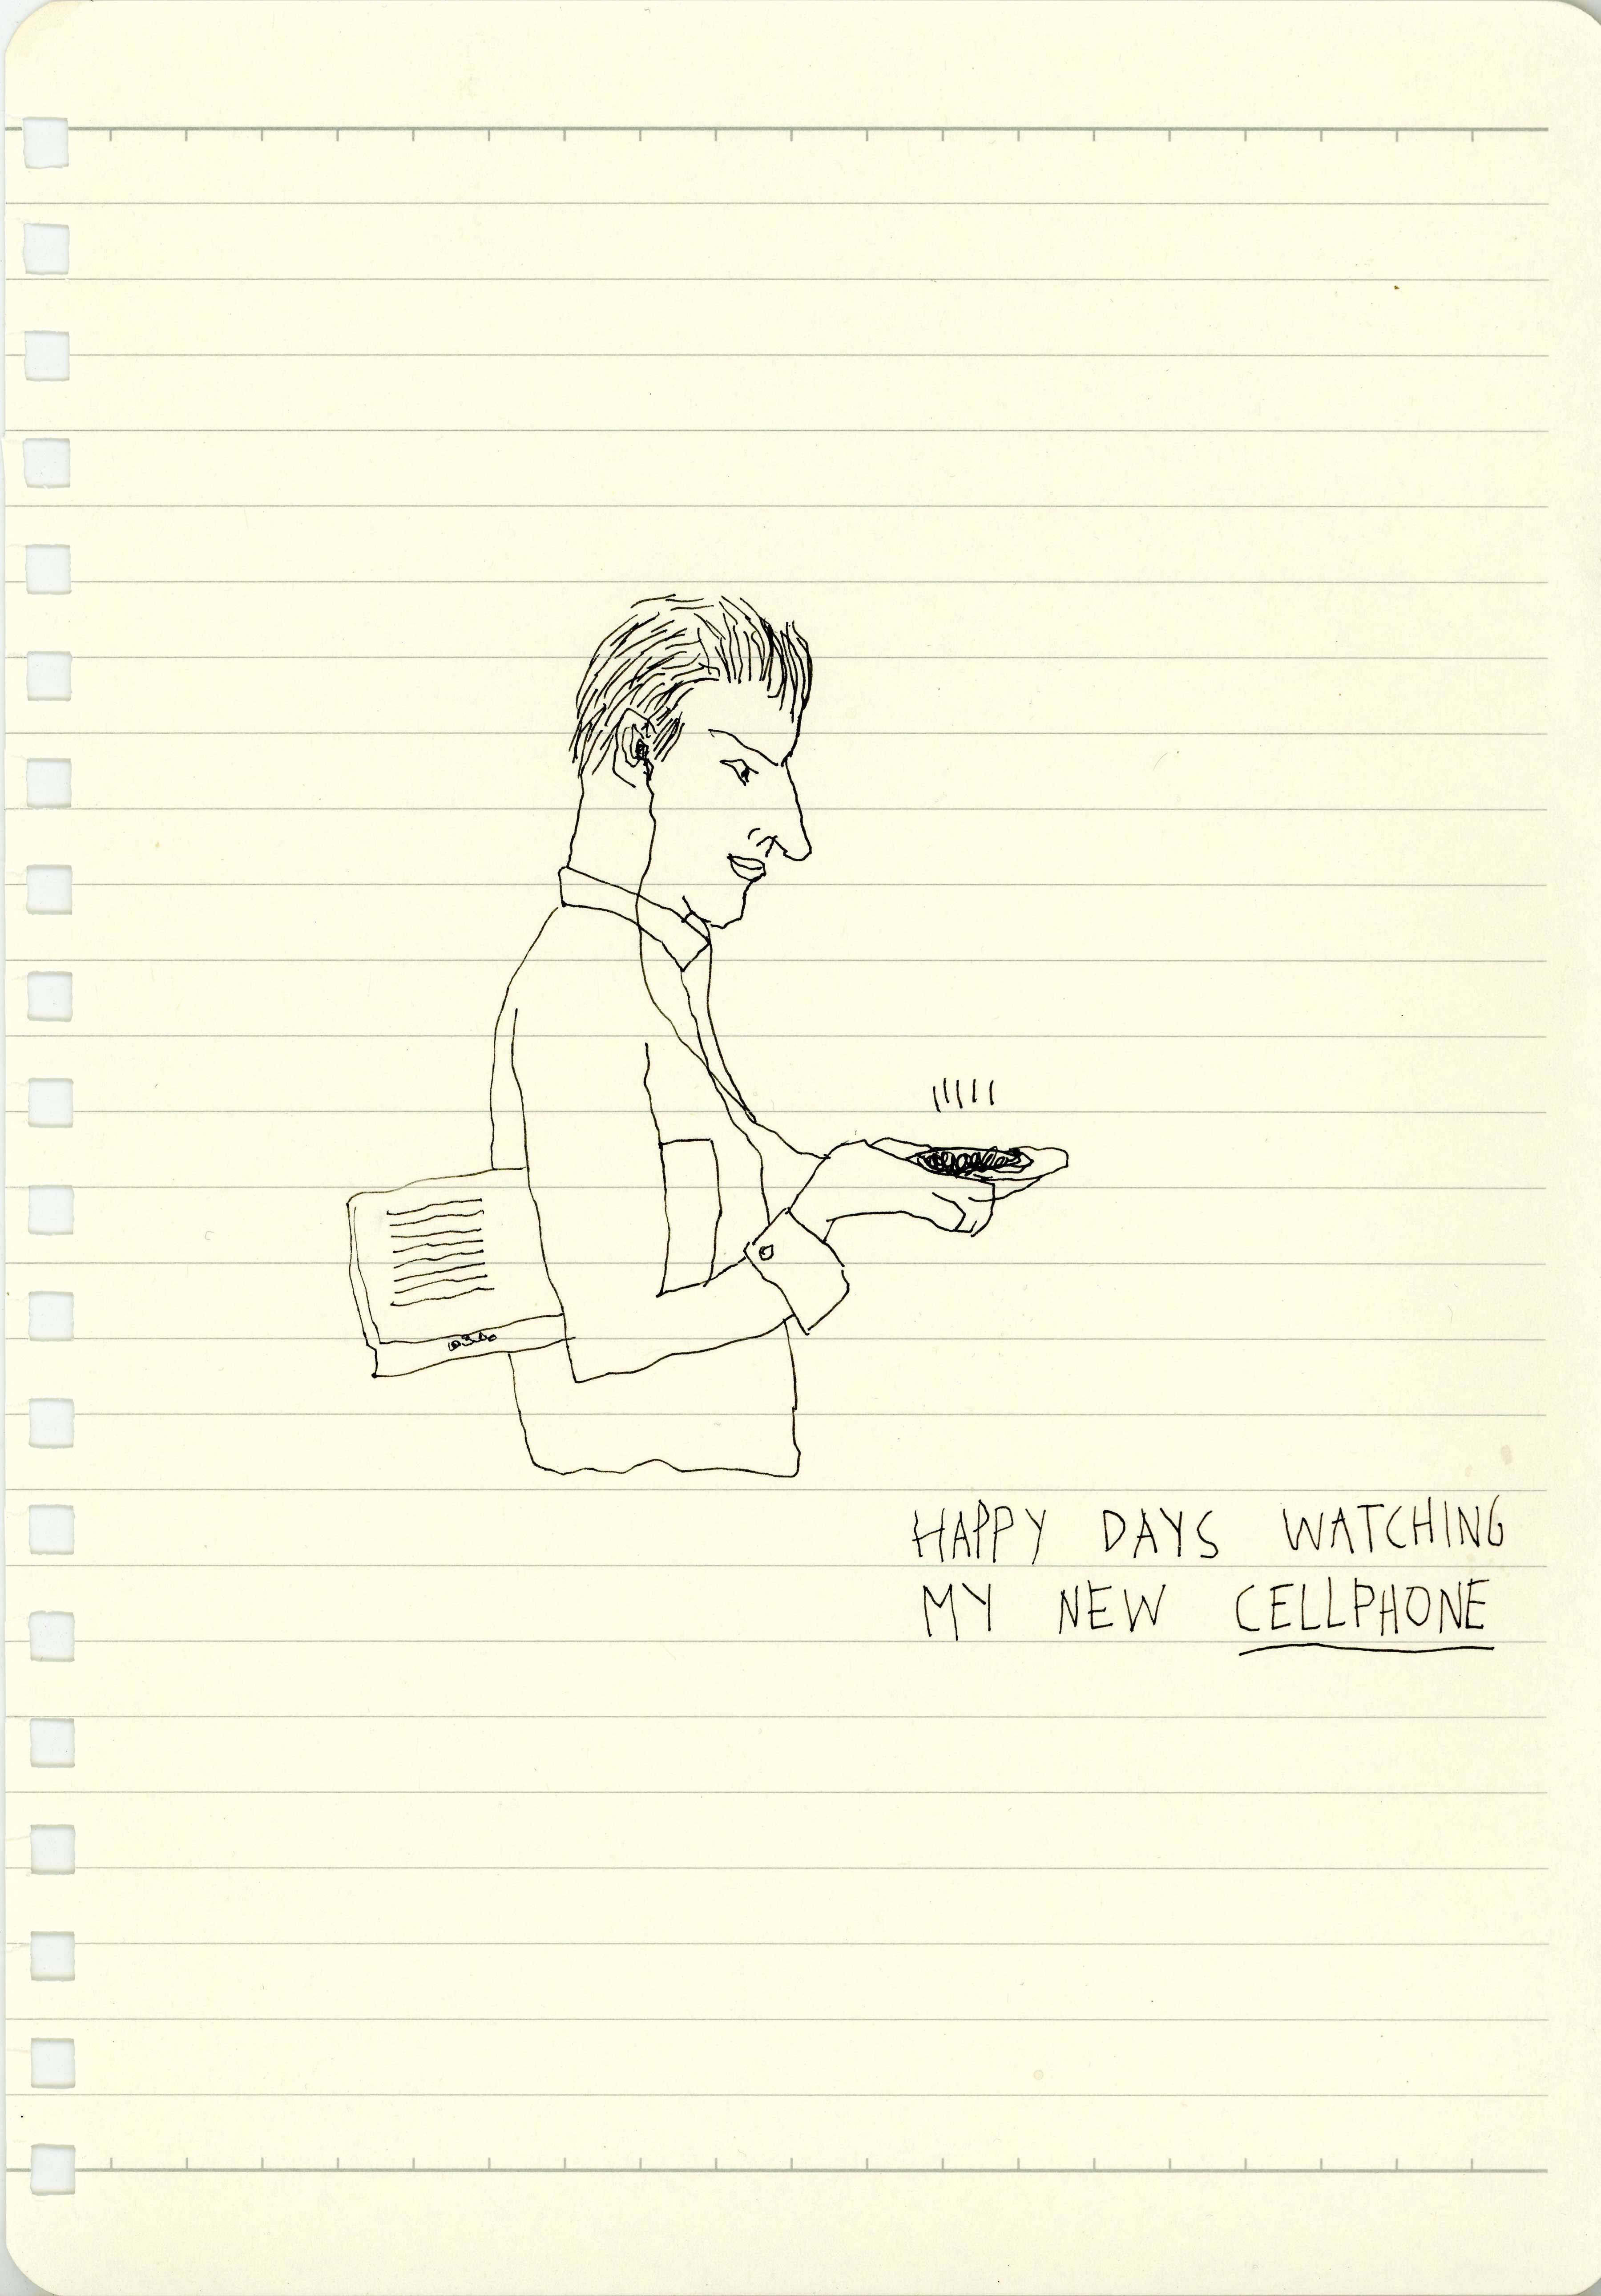 HAPPY DAYS WATCHING
MY NEW CELLPHONE